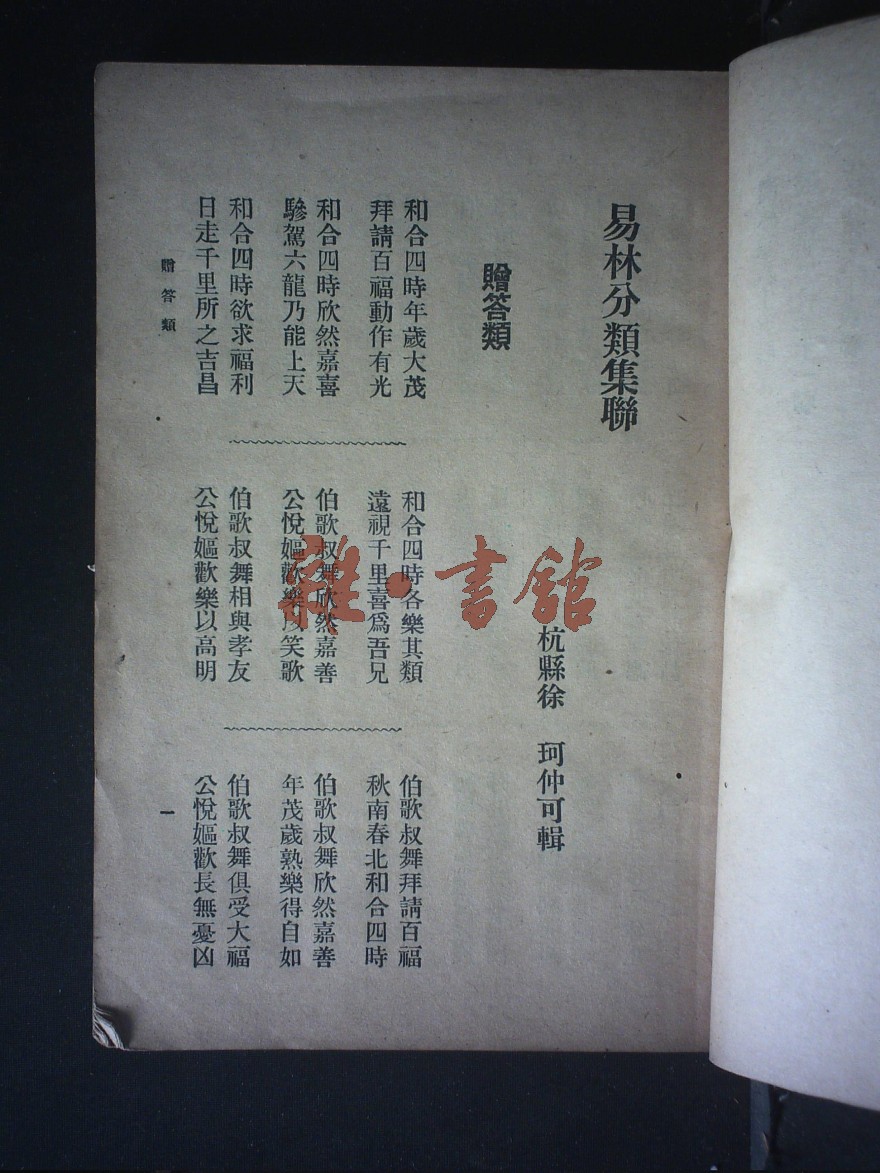 易林分類集聯
杭縣徐　珂仲可輯
贈答類
和合四時年歲大茂
拜請百福動作有光
和合四時欣然嘉喜
驂駕六龍乃能上天
和合四時欲求福利
日走千里所之吉昌
和合四時各樂其類
遠視千里喜爲吾兄
伯歌叔舞欣然嘉善
公悅嫗歡樂以笑歌
伯歌叔舞相與孝友
公悅嫗歡樂以高明
伯歌叔舞拜請百福
秋南春北和合四時
伯歌叔舞欣然嘉善
年茂歲熟樂得自如
伯歌叔舞俱受大福
公悅嫗歡長無憂凶
贈答類
一
雜·書館